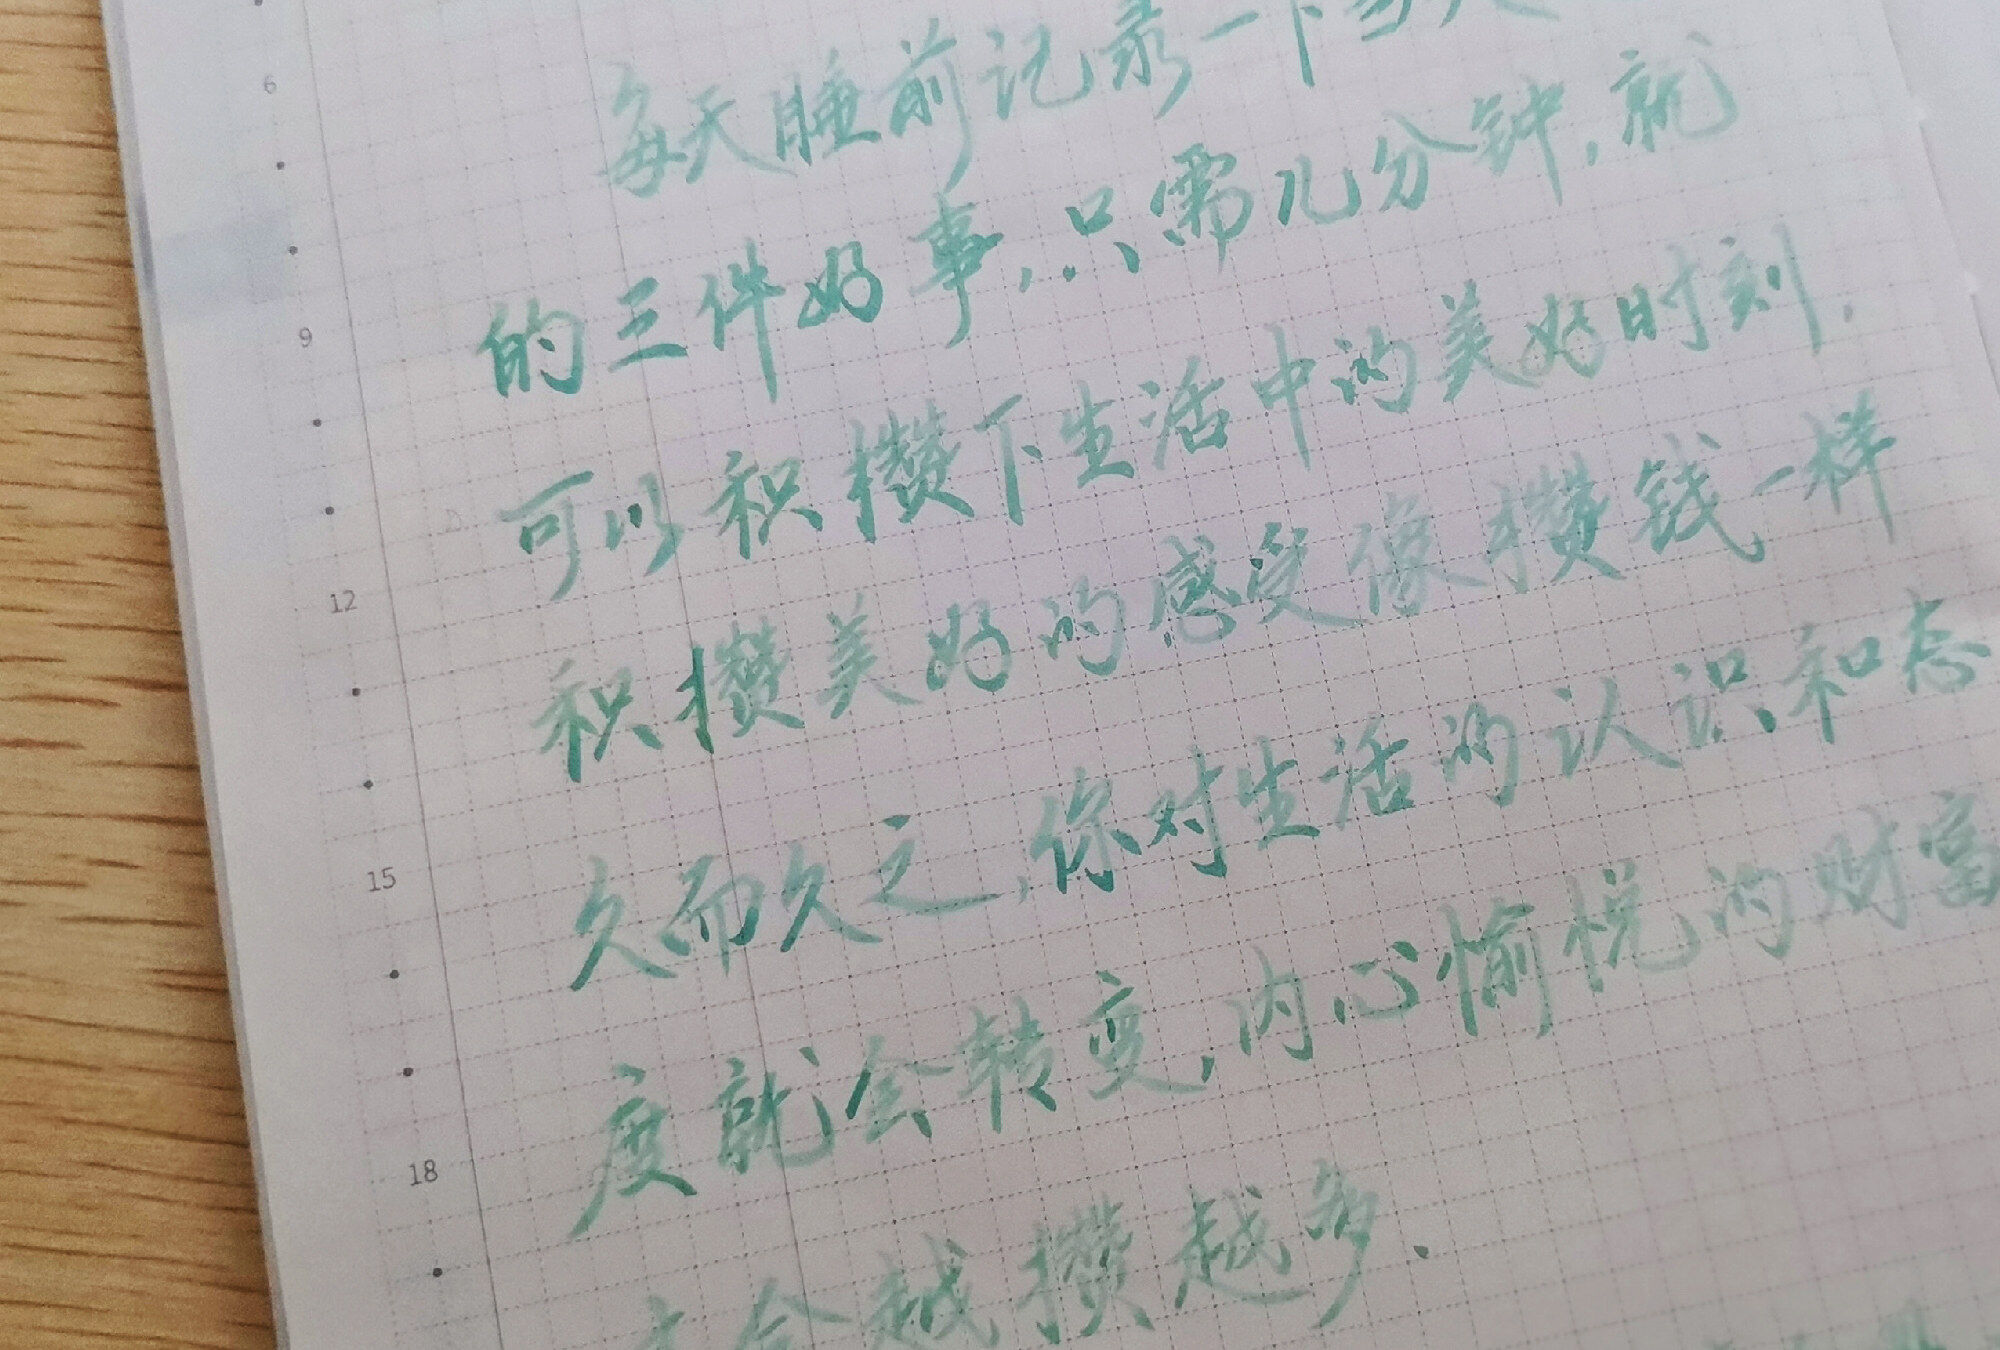 每天睡前记录一下当天
的三件好事,只需几分钟,就
可以积攒下生活中的美好时刻,
积攒美好的感受像攒钱一样
久而久之,你对生活的认识和态
度就会转变,内心愉悦的财富
会越攒越多.
6
9
12
15
18